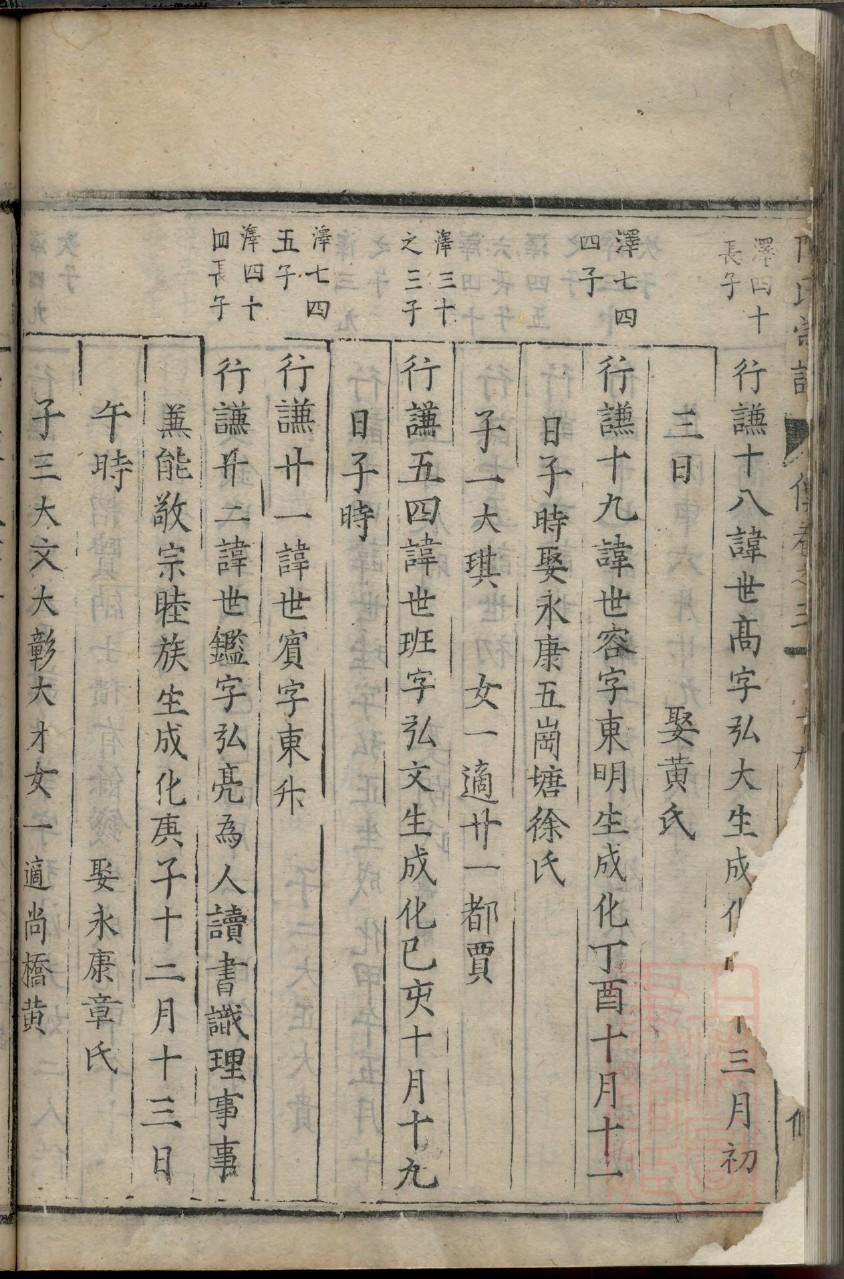 氏宗譜
傳卷之三
澤四十
長子
行謙十八諱世高字弘大生成三月初
三日 娶黃氏
澤七四
四子
行謙十九諱世容字東明生成化丁酉十月十一
日子時娶永康五崗塘徐氏
子一大琪 女一適廿一都賈
澤三十
之三子
行謙五四諱世班字弘文生成化己亥十月十九
日子時
澤七四
五子
行謙廿一諱世賓字東升
澤四十
四長子
行謙廿二諱世鑑字弘亮為人讀書識理事事
兼能敬宗睦族生成化庚子十二月十三日
午時 娶永康章氏
子三大文大彰大才女一適尚橋黃